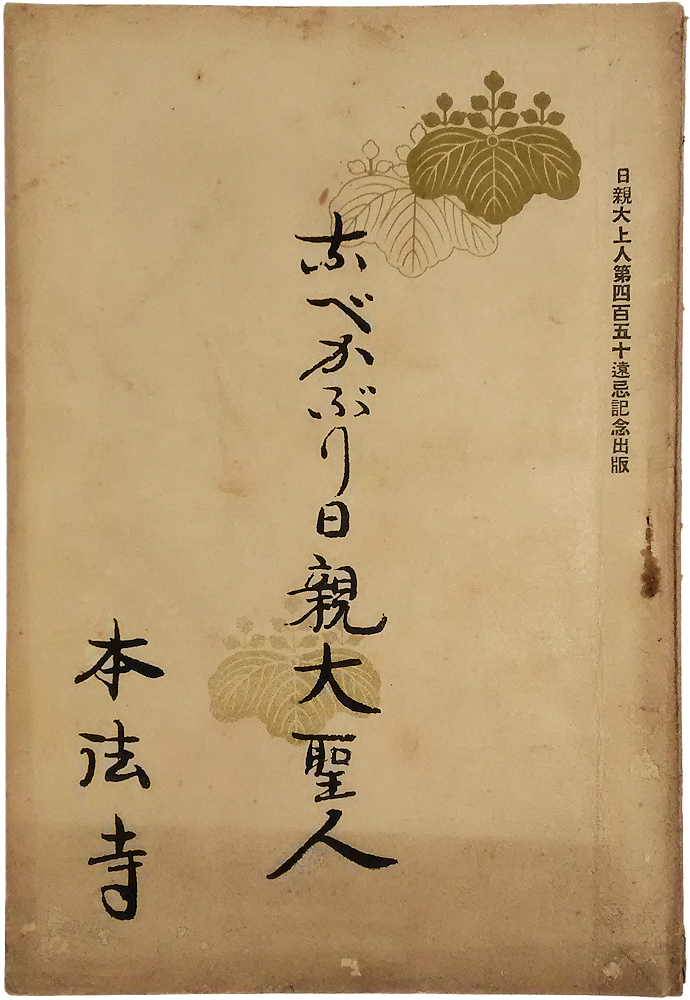 日親大上人第四百五十遠忌記念出版
なべかぶり日親大聖人
本法寺